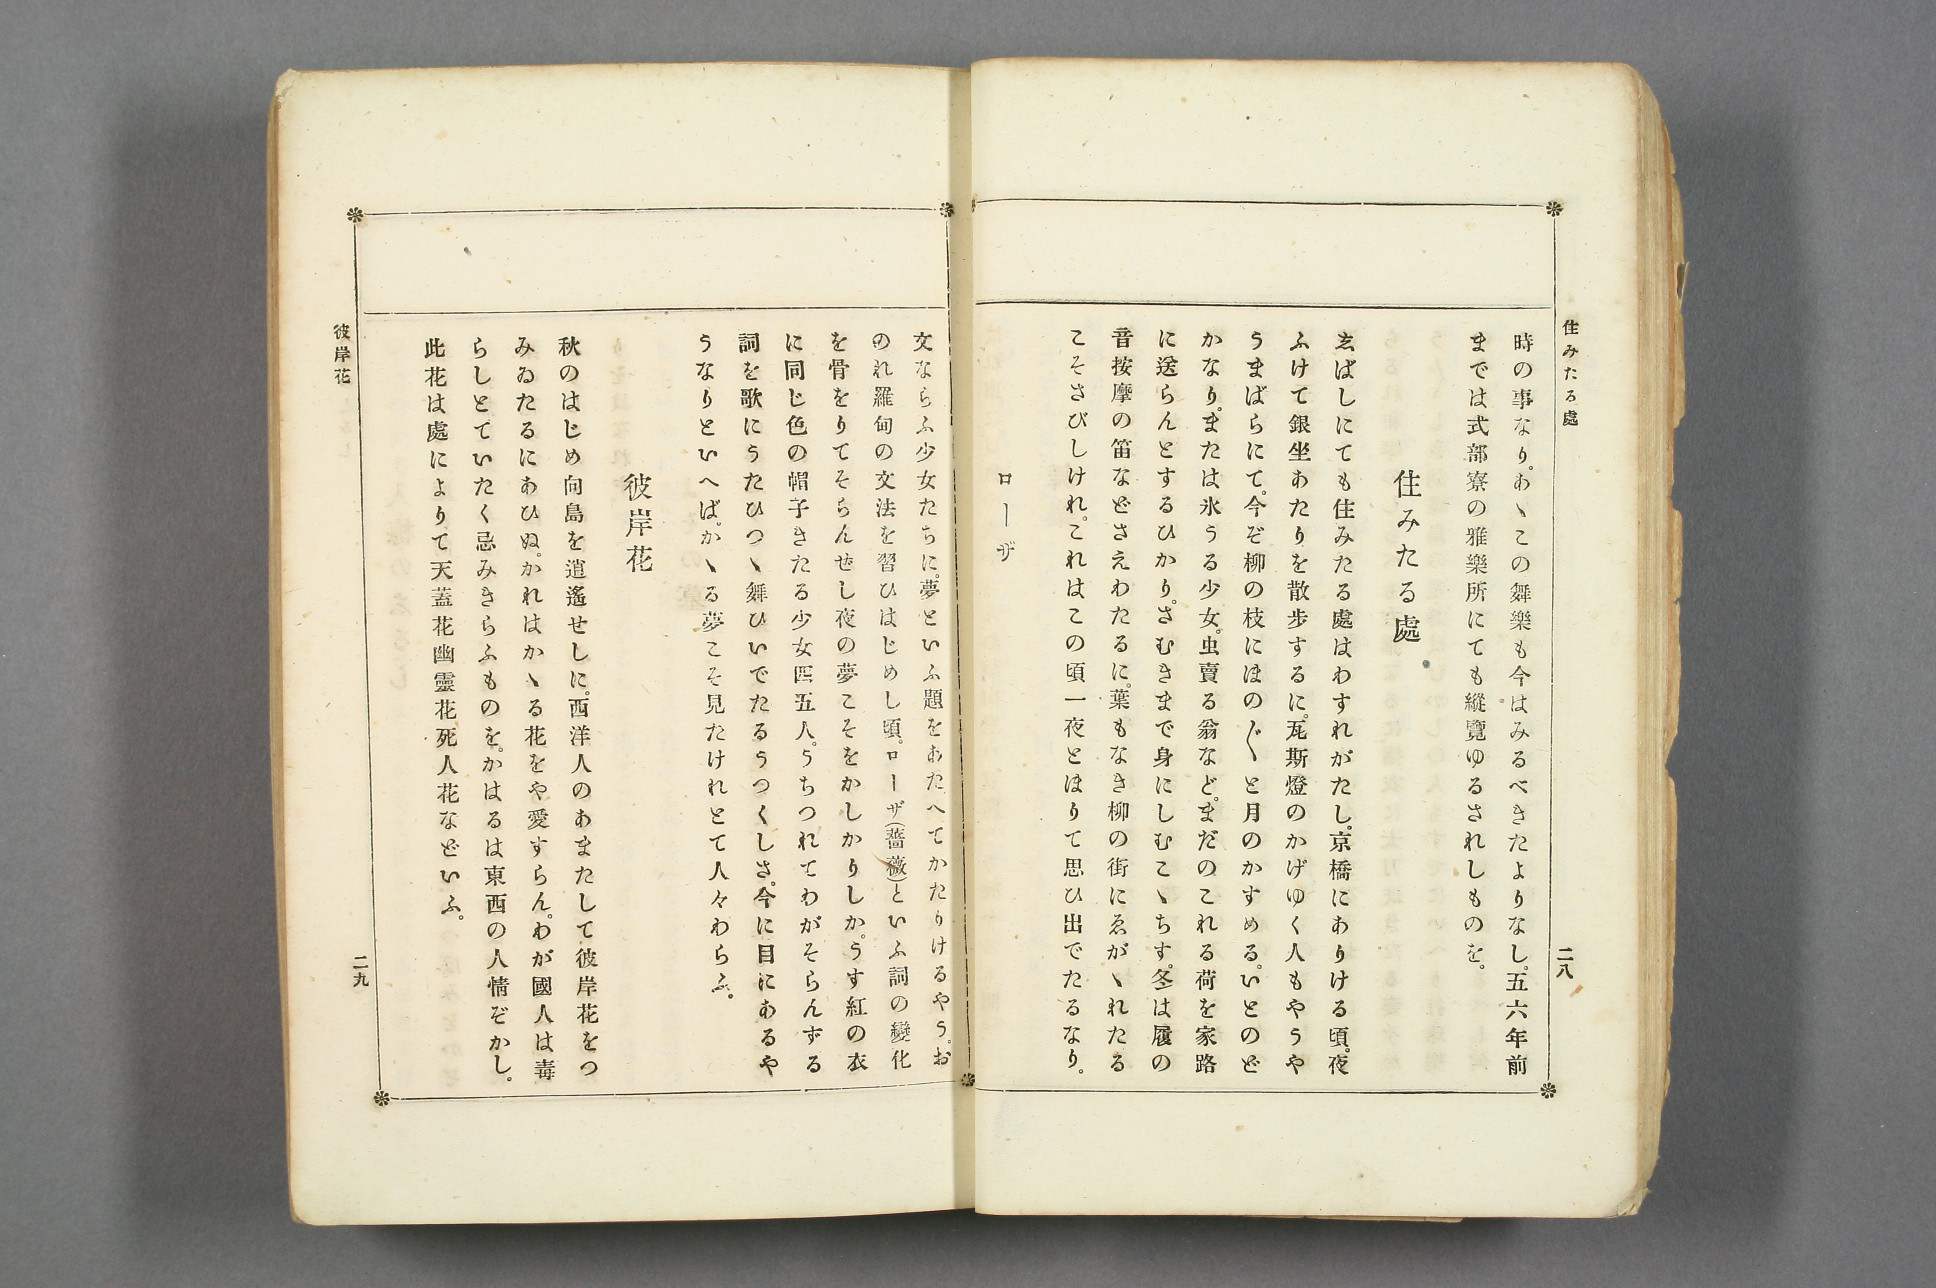 住みたる處
二八
時の事なり。あゝこの舞樂も今はみるべきたよりなし。五六年前
までは式部寮の雅樂所にても縱覽ゆるされしものを。
住みたる處
ゑばしにても住みたる處はわすれがたし。京橋にありける頃。夜
ふけて銀坐あたりを散歩するに。瓦斯燈のかげゆく人もやうや
うまばらにて。今ぞ柳の枝にほの〲と月のかすめる。いとのど
かなり。または氷うる少女。虫賣る翁など。まだのこれる荷を家路
に送らんとするひかり。さむきまで身にしむこゝちす。冬は履の
音按摩の笛などさえわたるに。葉もなき柳の街にゑがゝれたる
こそさびしけれ。これはこの頃一夜とほりて思ひ出でたるなり。
ローザ
文ならふ少女たちに。夢といふ題をあたへてかたりけるやう。お
のれ羅甸の文法を習ひはじめし頃。ローザ(薔薇)といふ詞の變化
を骨をりてそらんせし夜の夢こそをかしかりしか。うす紅の衣
に同じ色の帽子きたる少女四五人。うちつれてわがそらんずる
詞を歌にうたひつゝ舞ひいでたるうつくしさ。今に目にあるや
うなりといへば。かゝる夢こそ見たけれとて人々わらふ。
彼岸花
秋のはじめ向島を逍遙せしに。西洋人のあまたして彼岸花をつ
みゐたるにあひぬ。かれはかゝる花をや愛すらん。わが國人は毒
らしとていたく忌みきらふものを。かはるは東西の人情ぞかし。
此花は處によりて天蓋花幽靈花死人花などいふ。
彼岸花
二九